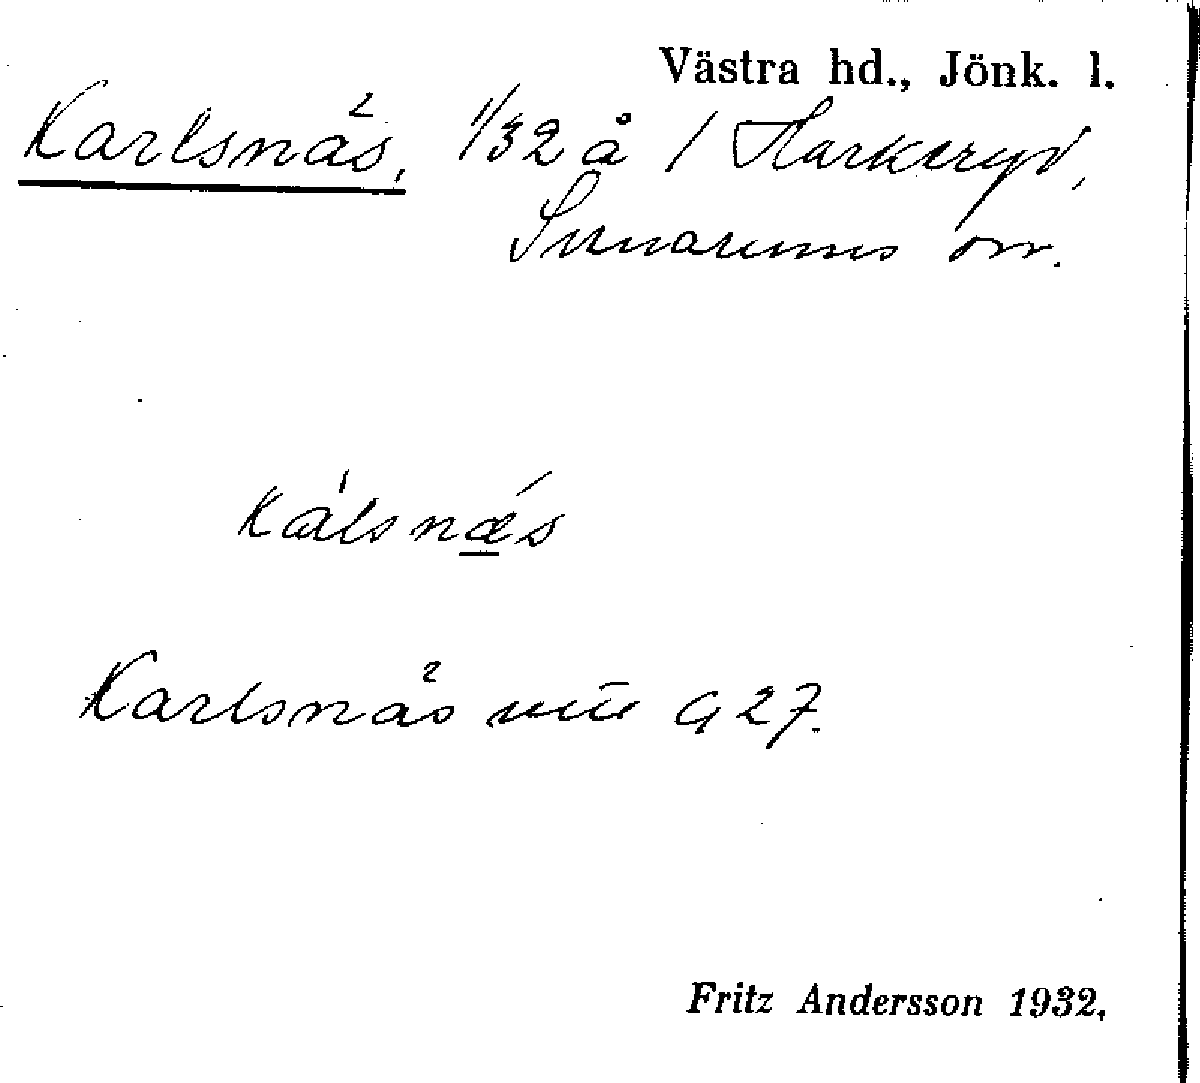 Västra hd., Jönk. l.
Karlsnäs, 1/32 å / Harkeryd,
Svenarums sn.
kálsnǽs
Karlsnäs G 27.
Fritz Andersson 1932,